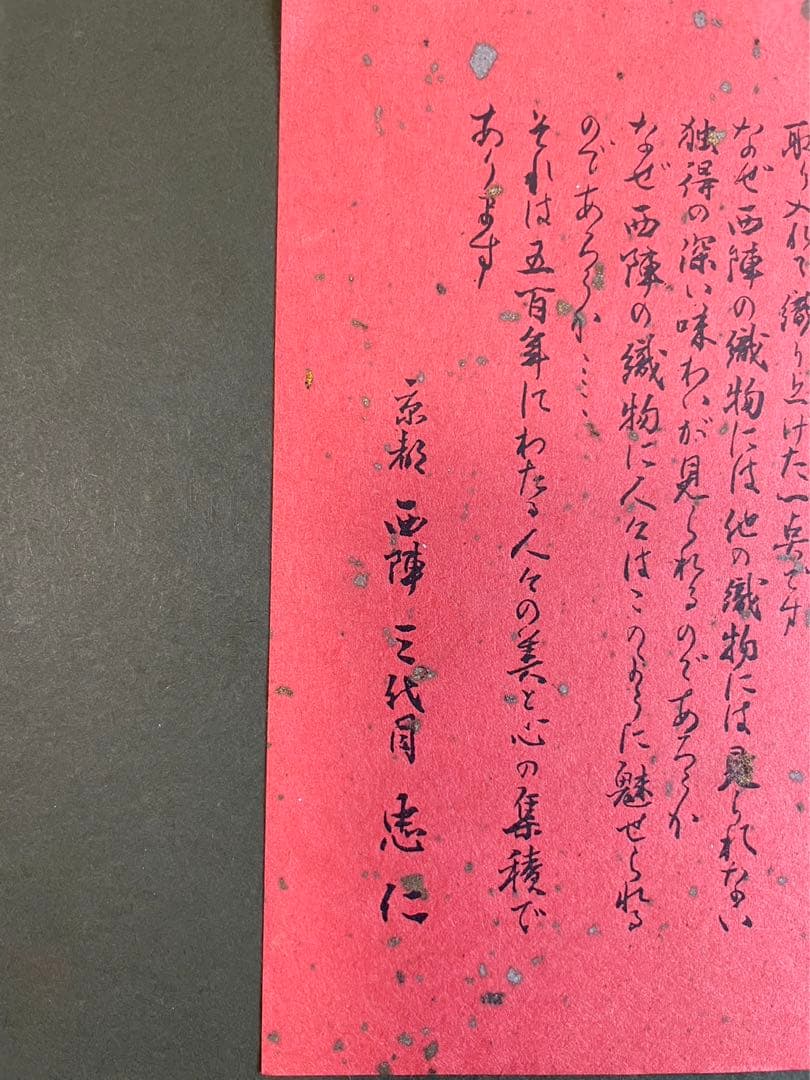 取り入れて織り上げた一点です
なぜ西陣の織物には他の織物には見られない
独得の深い味わいが見られるのであろうか
なぜ西陣の織物に人々はこのように魅せられる
のであろうか……
それは五百年にわたる人々の美と心の集積で
あります
京都 西陣 三代目 忠仁